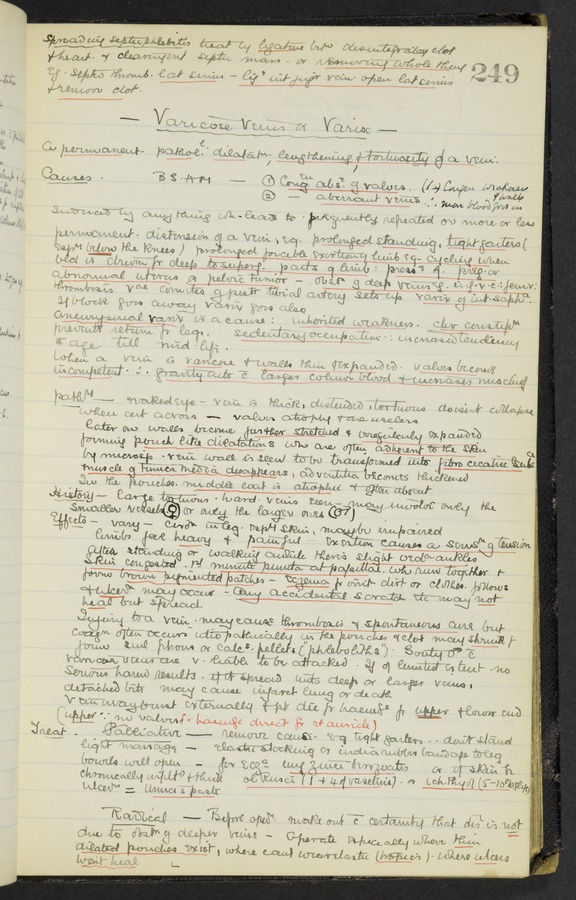 Spreading septic phlebitis treat by ligature betw disintegrating clot
& heart. & clearing out septic mass. or removing whole thing
eg. septic thromb. lat sinus – lige int jugr vein open lat sinus
& remove clot.
249
— Varicose Veins or Varix —
A permanent pathol. dilatatn, lengthening & tortuosity of a vein.
Causes. BSAM — ① Cong absce of valves.
② — aberrant veins
Induced by anything wh. leads to frequently repeated or more or less
permanent distension of a vein, eg. prolonged standing, tight garters (
below the knees) prolonged forcible exertion of limb eg cycling when
bld is driven fr deep to superfl parts of limb: presse of preg. or
abnormal uterus or pelvic tumor – obstn of deep veins
thrombosis venae comites of post tibial artery sets up varix of int saph.
If block goes away varix goes also
aneurysmal varix is a cause: inherited weakness. chr constipn
prevents return fr legs. sedentary occupation: increased tendency
& age till mid life.
When a vein is varicose & walls thin & expanded. valves become
incompetent ∴ gravity acts c larger column blood & increases mischief
Pathy — naked eye – vein is thick, distended, tortuous doesnt collapse
when cut across — valves atrophy & are useless
later on walls become further stretched & irregularly expanded
forming pouch like dilatations wh are often adherent to the skin
by microscp. vein wall is seen to be transformed into fibro cicatric
muscle of tunica media disappears, adventitia becomes thickened
In the pouches middle coat is atrophic & often absent
History – large tortuous hard veins seen – may involve only the
smaller vessels (♀) or only the larger ones (♂)
Effects – vary – circn in leg. espy skin, may be impaired
limbs feel heavy & painful – exertion causes a sensn of tension
After standing or walking awhile there is slight oedma ankles
Skin congested. rd minute puncta at papillae wh run together &
form brown pigmented patches – Eczema fr irrit dirt or clothes follows
& ulcern may occur – any accidental scratch etc may not
heal but spread.
Injury to a vein may cause thrombosis & spontaneous cure but
coagn often occurs idiopathically in the pouches & clot may shrink &
form fibrous or calcs. pellets ("phleboliths").
varicose veins are v. liable to be attacked. If of limited extent no
serious harm results. if it spread into deep or larger veins,
detached bits may cause infarct lung or death
V. in may burst externally & pt die fr haemge fr upper & lower end
(upper ∵ no valves ∴ haemge direct fr rt auricle)
Treat. Palliative – remove cause. eg tight garters.. dont stand
light massage – elastic stocking or indiarubber bandage to leg
bowels well open – for ecza ung zinci benzoatis or if skin be
chronically infiltd & thick ol Rusci (1 + 4 of vaseline). or ichthyol (5–10%
ulcern = Unna's paste
Radical — Before opern. make out c certainty that dis is not
due to obstn of deeper veins – Operate especially where thin
dilated pouches exist, where cant wear elastic (tropics). where ulcers
wont heal